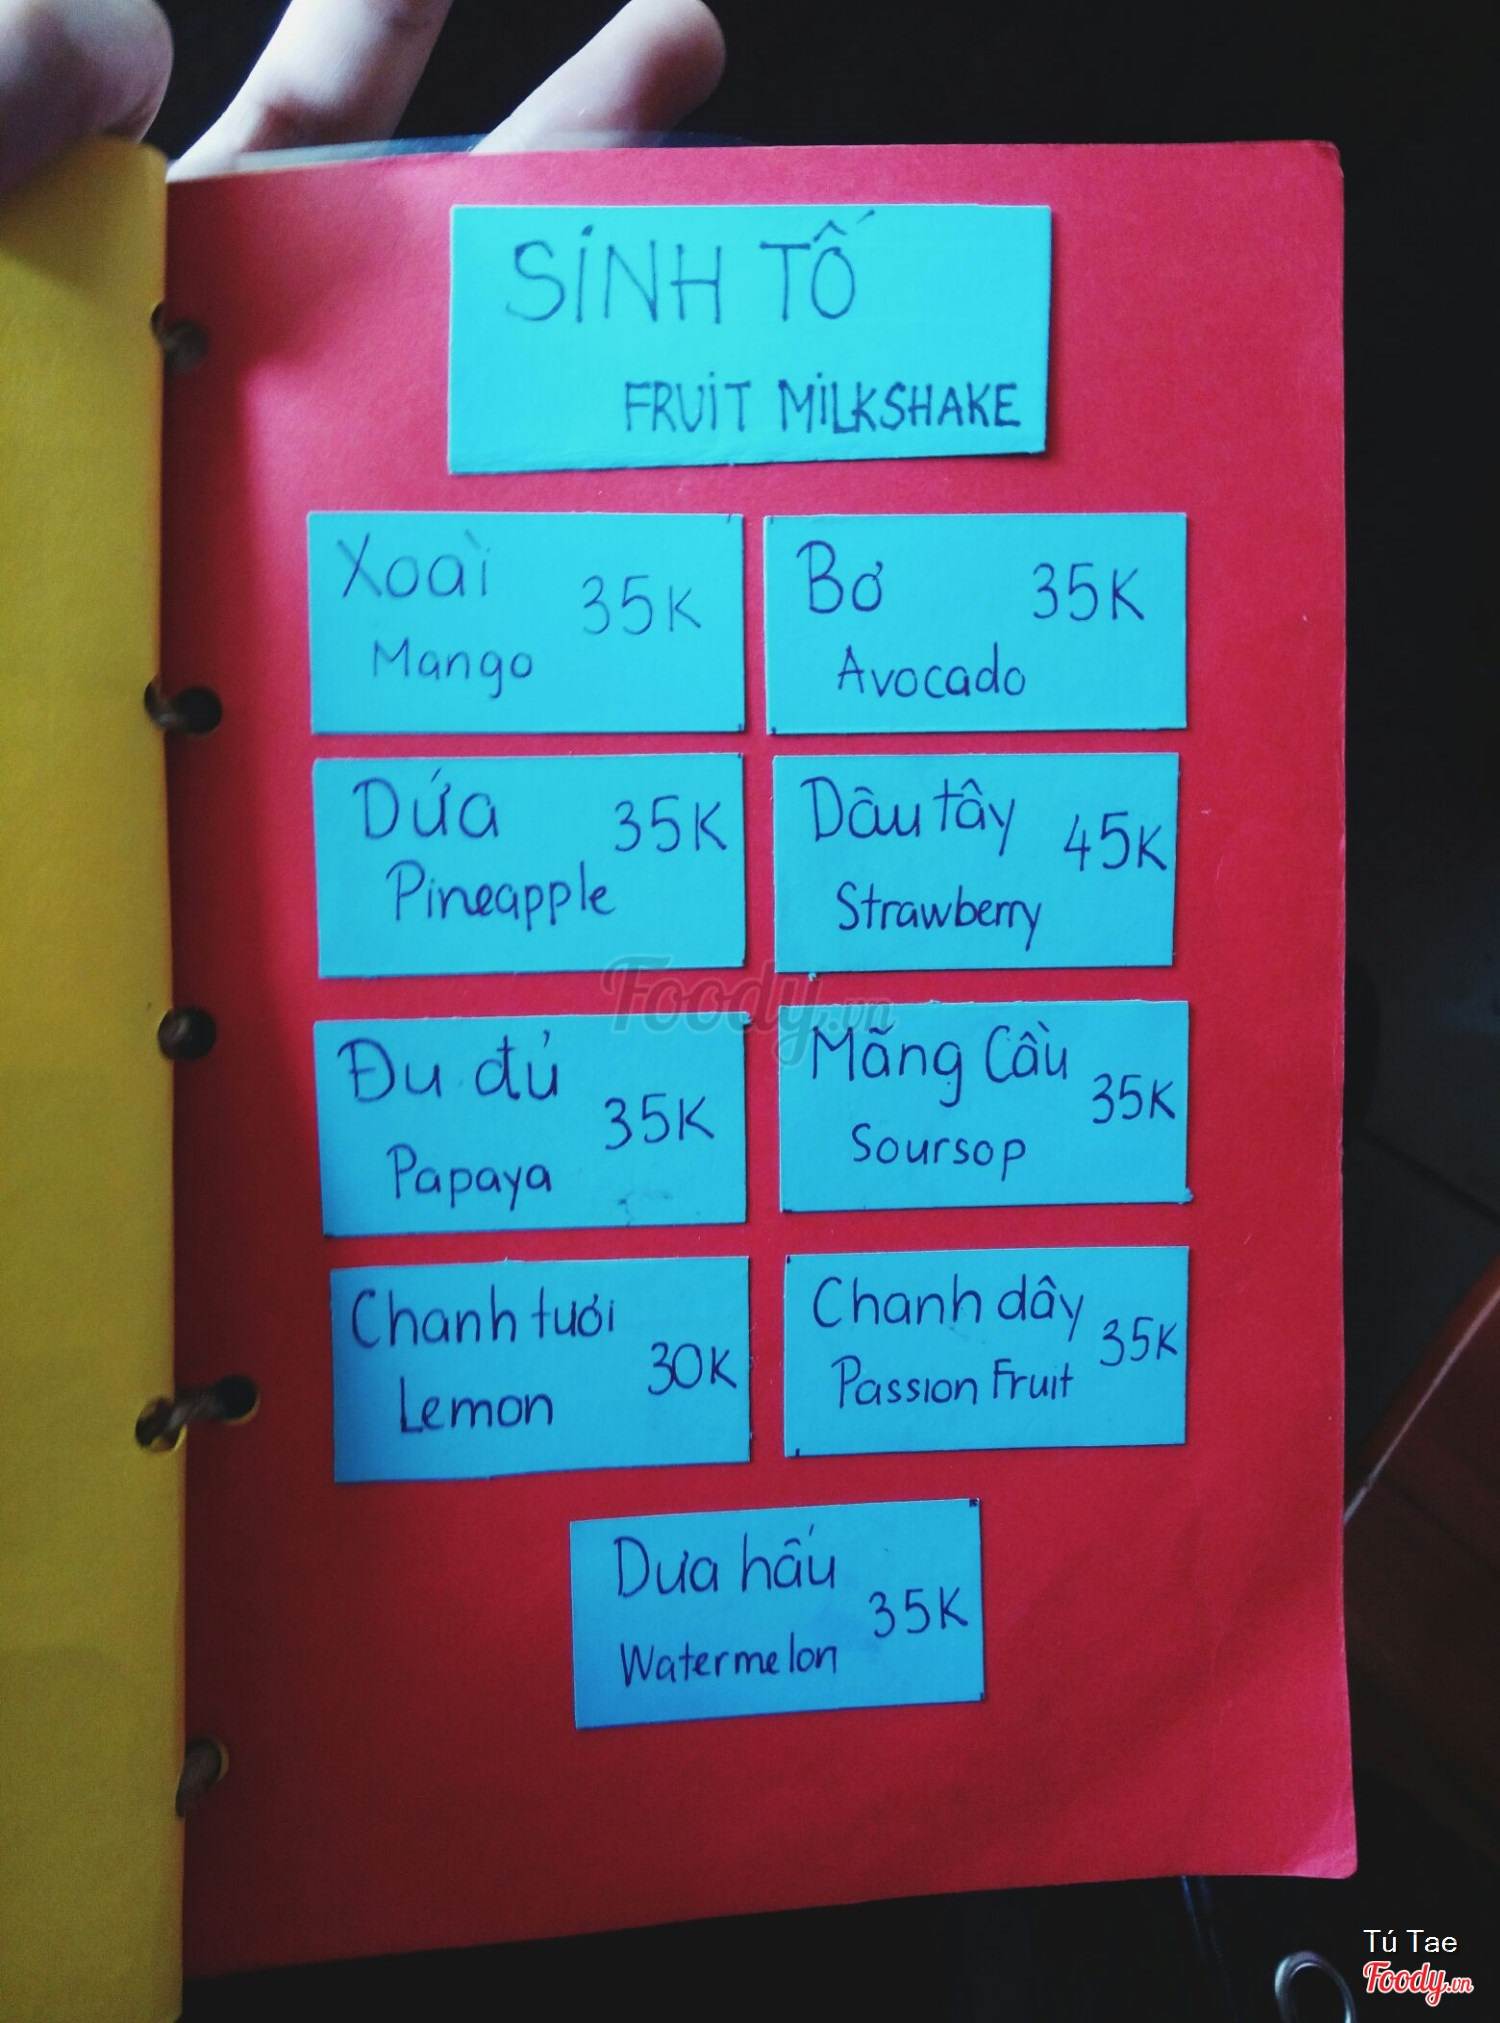 SINH TỐ
FRUIT MILKSHAKE
Xoài 35K
Mango
Bơ 35K
Avocado
Dứa 35K
Pineapple
Dâu tây 45K
Strawberry
Foody.vn
Đu đủ 35K
Papaya
Mãng Cầu 35K
Soursop
Chanh tươi 30K
Lemon
Chanh dây 35K
Passion Fruit
Dưa hấu 35K
Watermelon
Tú Tae
Foody.vn